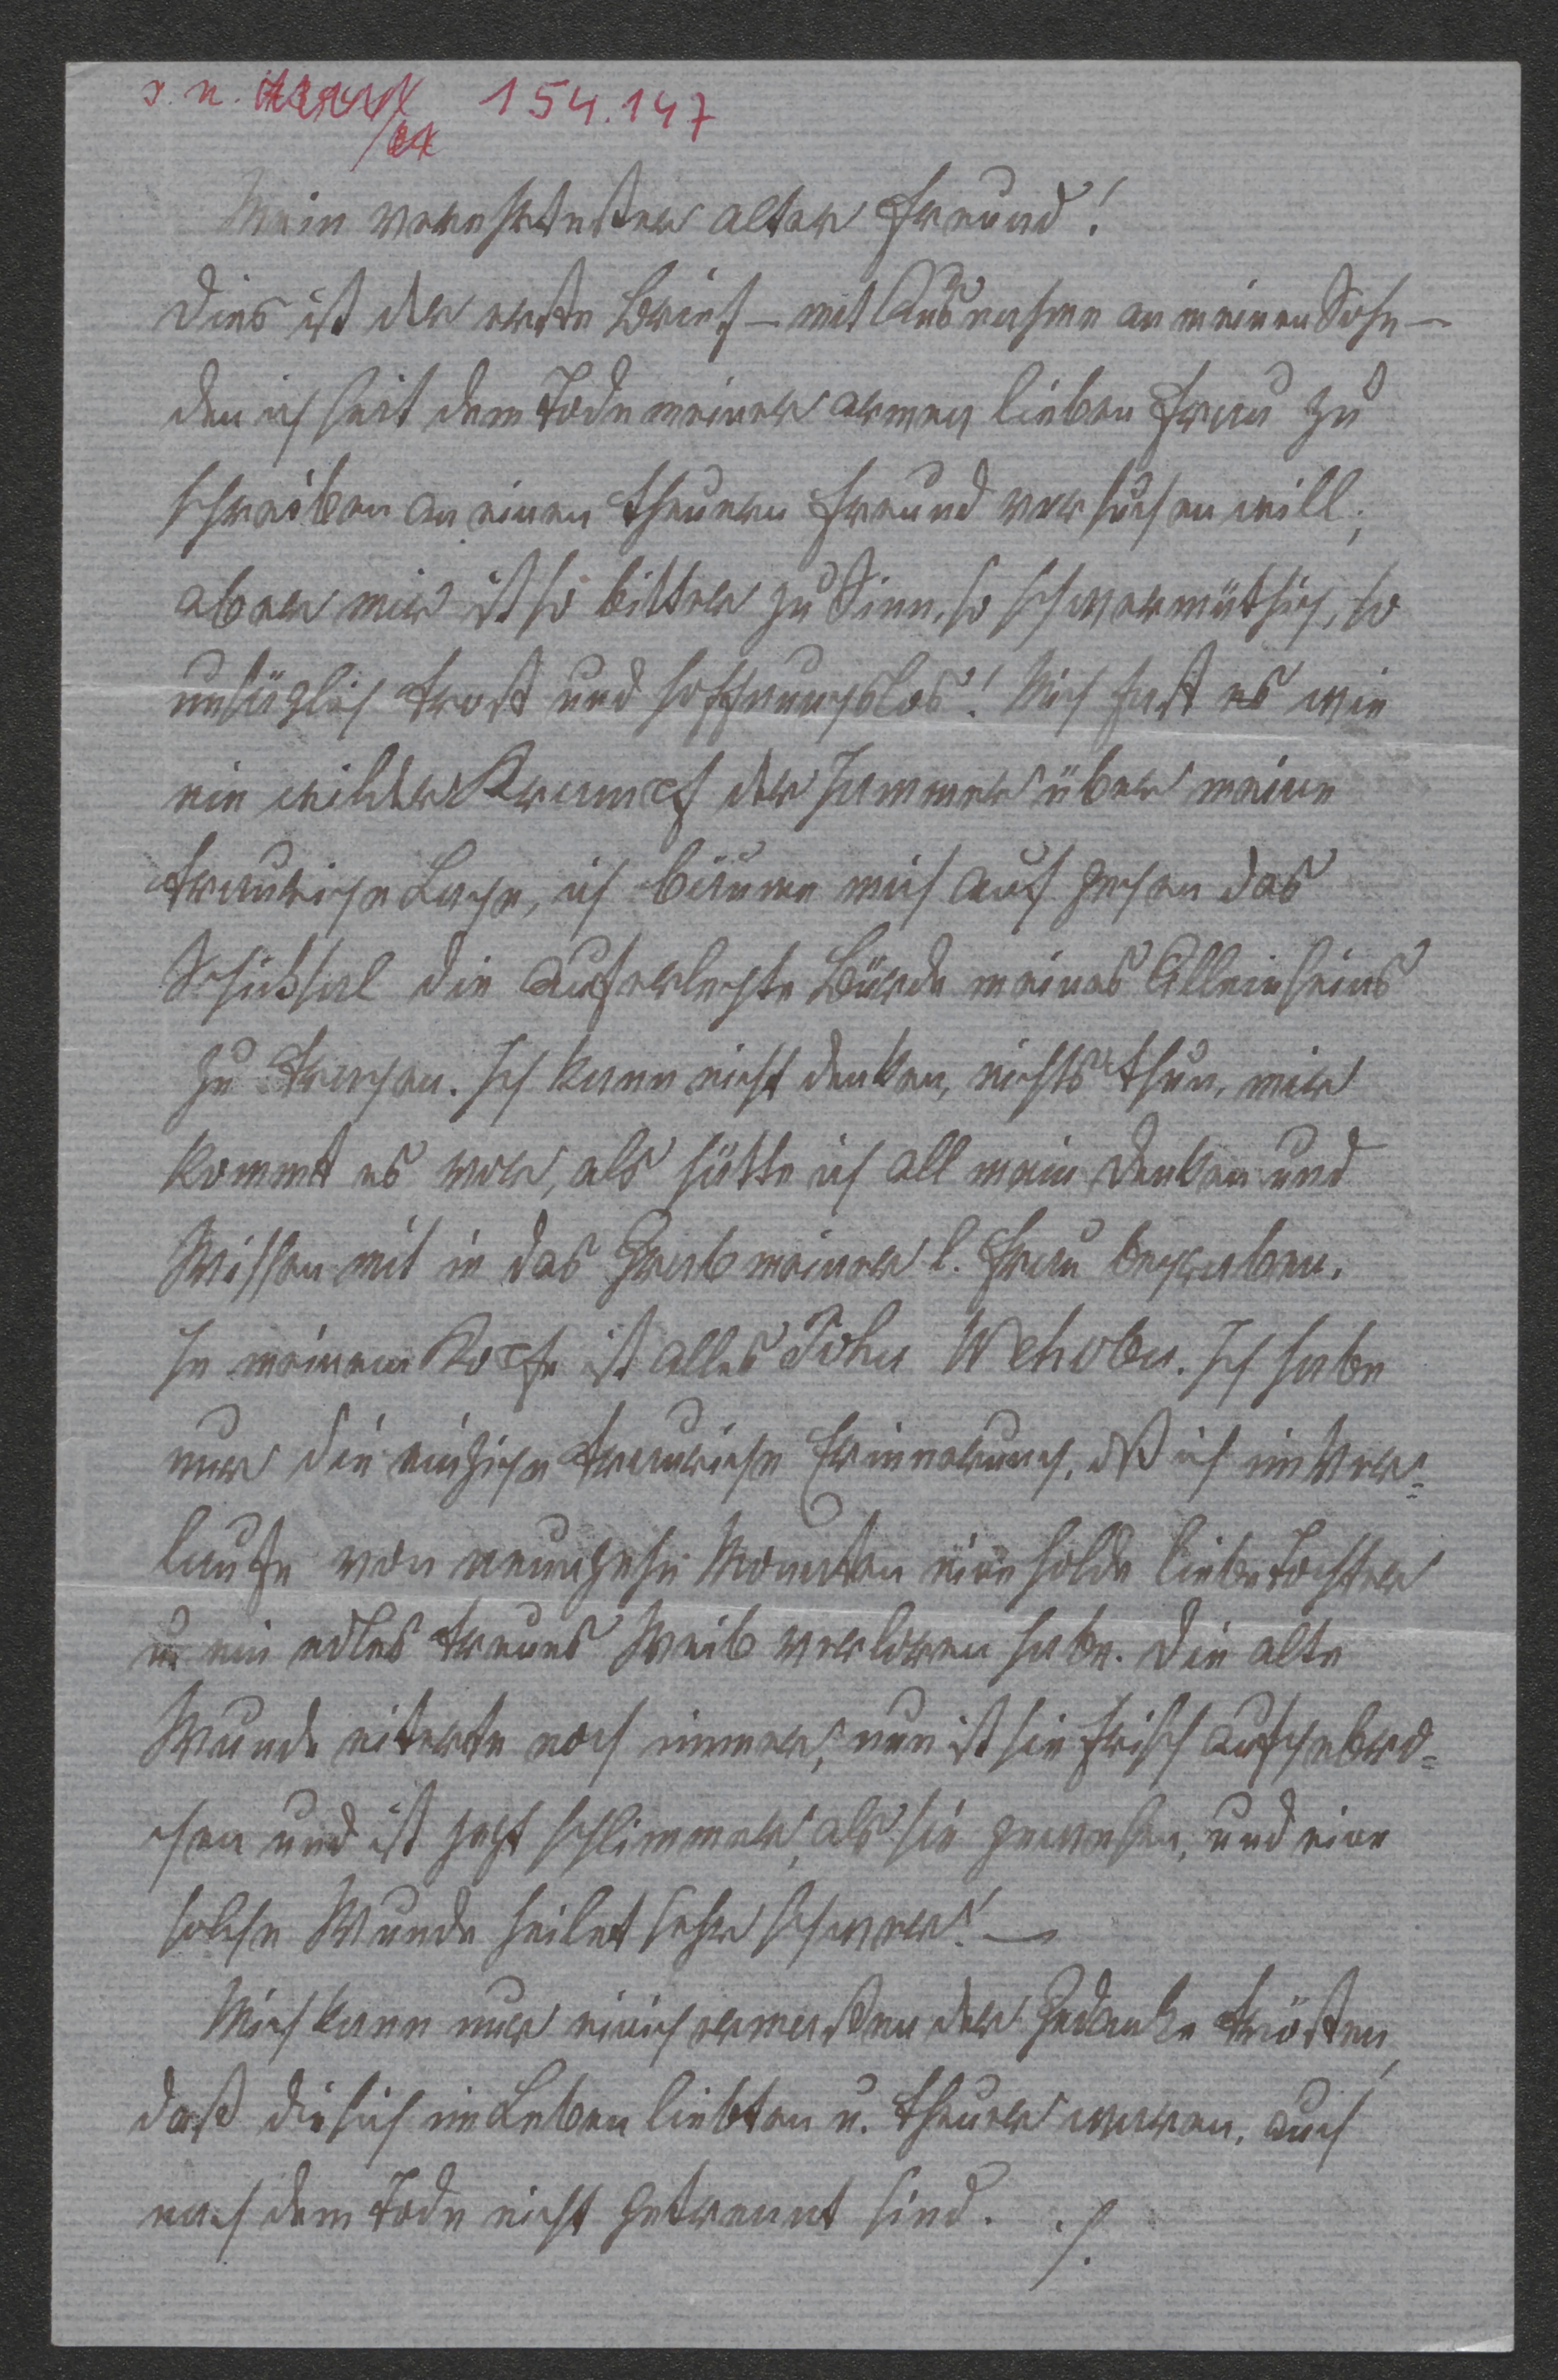 154.147
Mein verehrtester alter Freund!
Dies ist der erste Brief – mit Ausnahme an meinen Sohn –
den ich seit dem Tode meiner armen lieben Frau zu
schreiben an einen theuern Freund versuchen will;
aber mir ist so bitter zu Sinn, so schwermüthig, so
unsäglich trost und hoffnungslos! Mich faßt es wie
ein wilder Krampf der Jammer über meine
traurige Lage, ich bäume mich auf gegen das
Schicksal die auferlegte Bürde meines Alleinseins
zu tragen. Ich kann nicht denken, nichts thun, mir
kommt es vor, als hätte ich all mein Denken und
Wissen mit in das Grab meiner l. Frau begraben.
In meinem Kopfe ist alles Tohu Wehobu. Ich habe
nur die einzige traurige Erinnerung, dß ich im Ver=
laufe von neunzehn Monaten eine holde liebe Tochter
u. ein edles treues Weib verloren habe. Die alte
Wunde eiterte noch immer, nun ist sie frisch aufgebro=
chen und ist jezt schlimmer, als sie gewesen, und eine
solche Wunde heilet sehr schwer! –
Mich kann nur einigermaßen der Gedanke trösten,
daß die sich im Leben liebten u. theuer waren, auch
nach dem Tode nicht getrennt sind. ./.